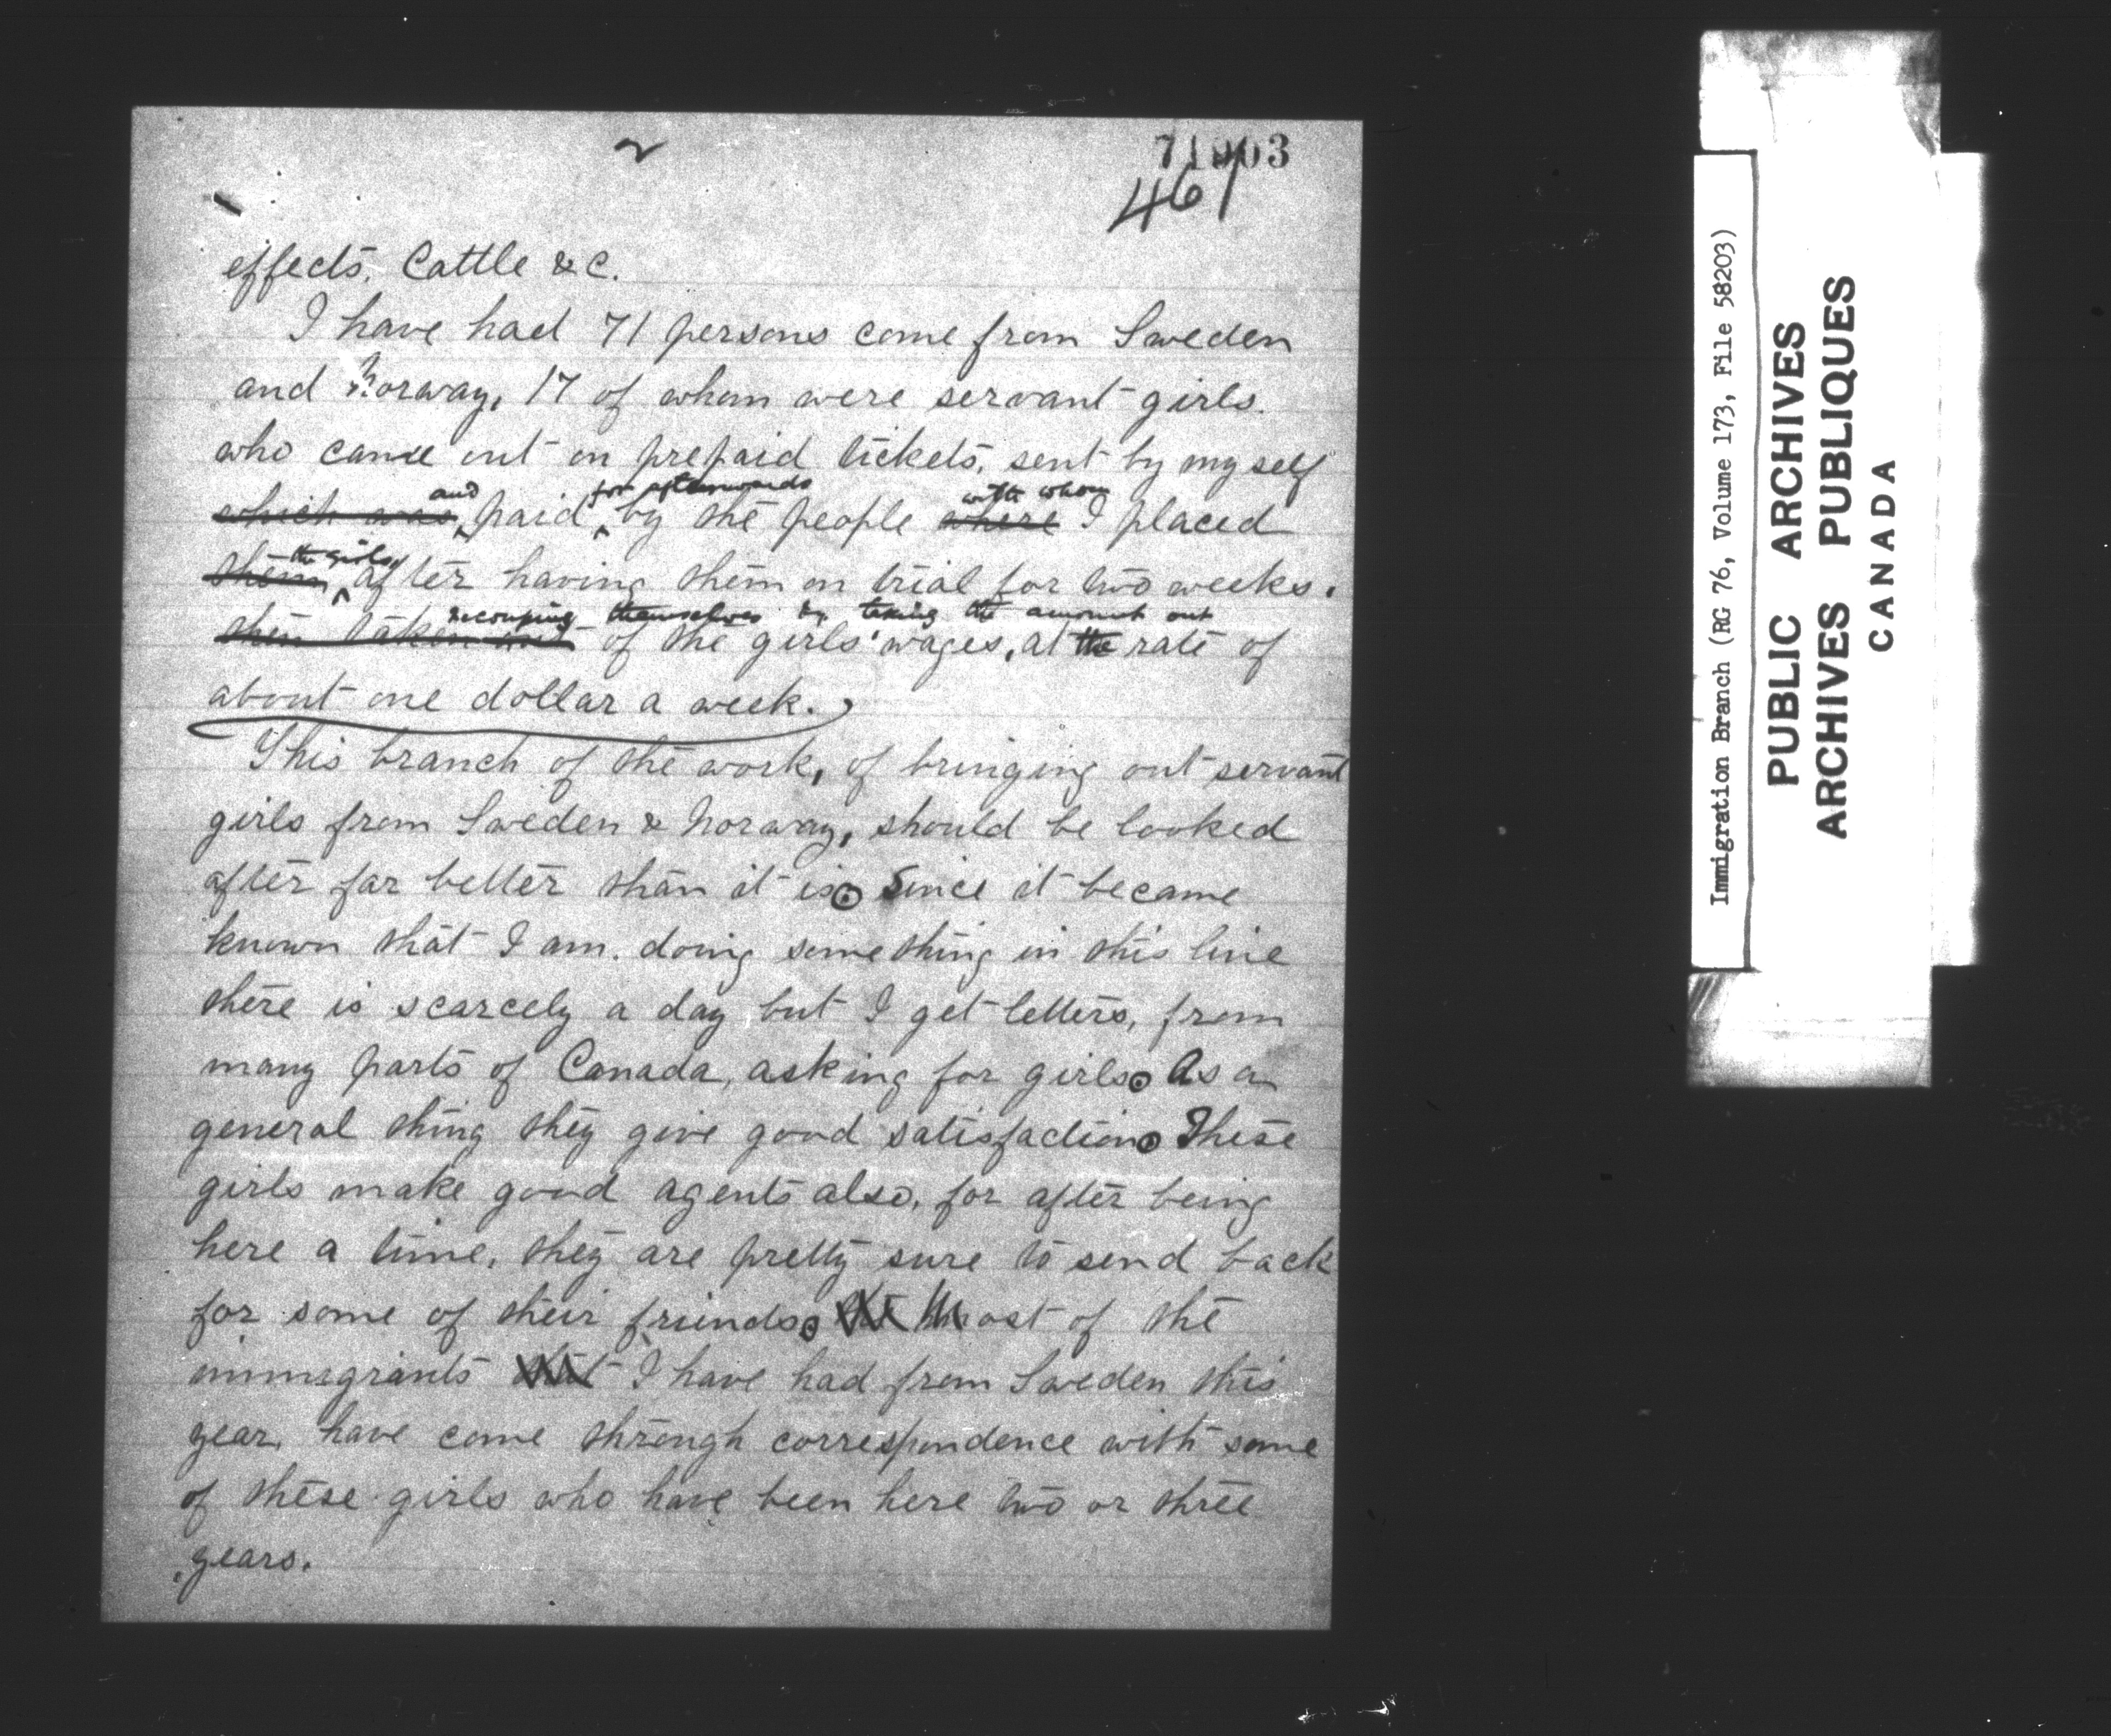 2
71903
461
effects, Cattle &c.
I have had 71 persons come from Sweden
and Norway, 17 of whom were servant girls.
who came out on prepaid tickets, sent by myself
and for afterwards with whom
which was paid by the people where I placed
the girls
them after having them on trial for two weeks.
recouping themselves by taking the amount out
then taken out of the girls' wages, at the rate of
about one dollar a week.
This branch of the work, of bringing out servant
girls from Sweden & Norway, should be looked
after far better than it is. Since it became
known that I am. doing something in this line
there is scarcely a day but I get letters, from
many parts of Canada, asking for girls. As a
general thing they give good satisfaction. These
girls make good agents also, for after being
here a time, they are pretty sure to send back
for some of their friends. Most of the
immigrants that I have had from Sweden this
year, have come through correspondence with some
of these girls who have been here two or three
years.
Immigration Branch (RG 76, Volume 173, File 58203)
PUBLIC ARCHIVES
ARCHIVES PUBLIQUES
CANADA